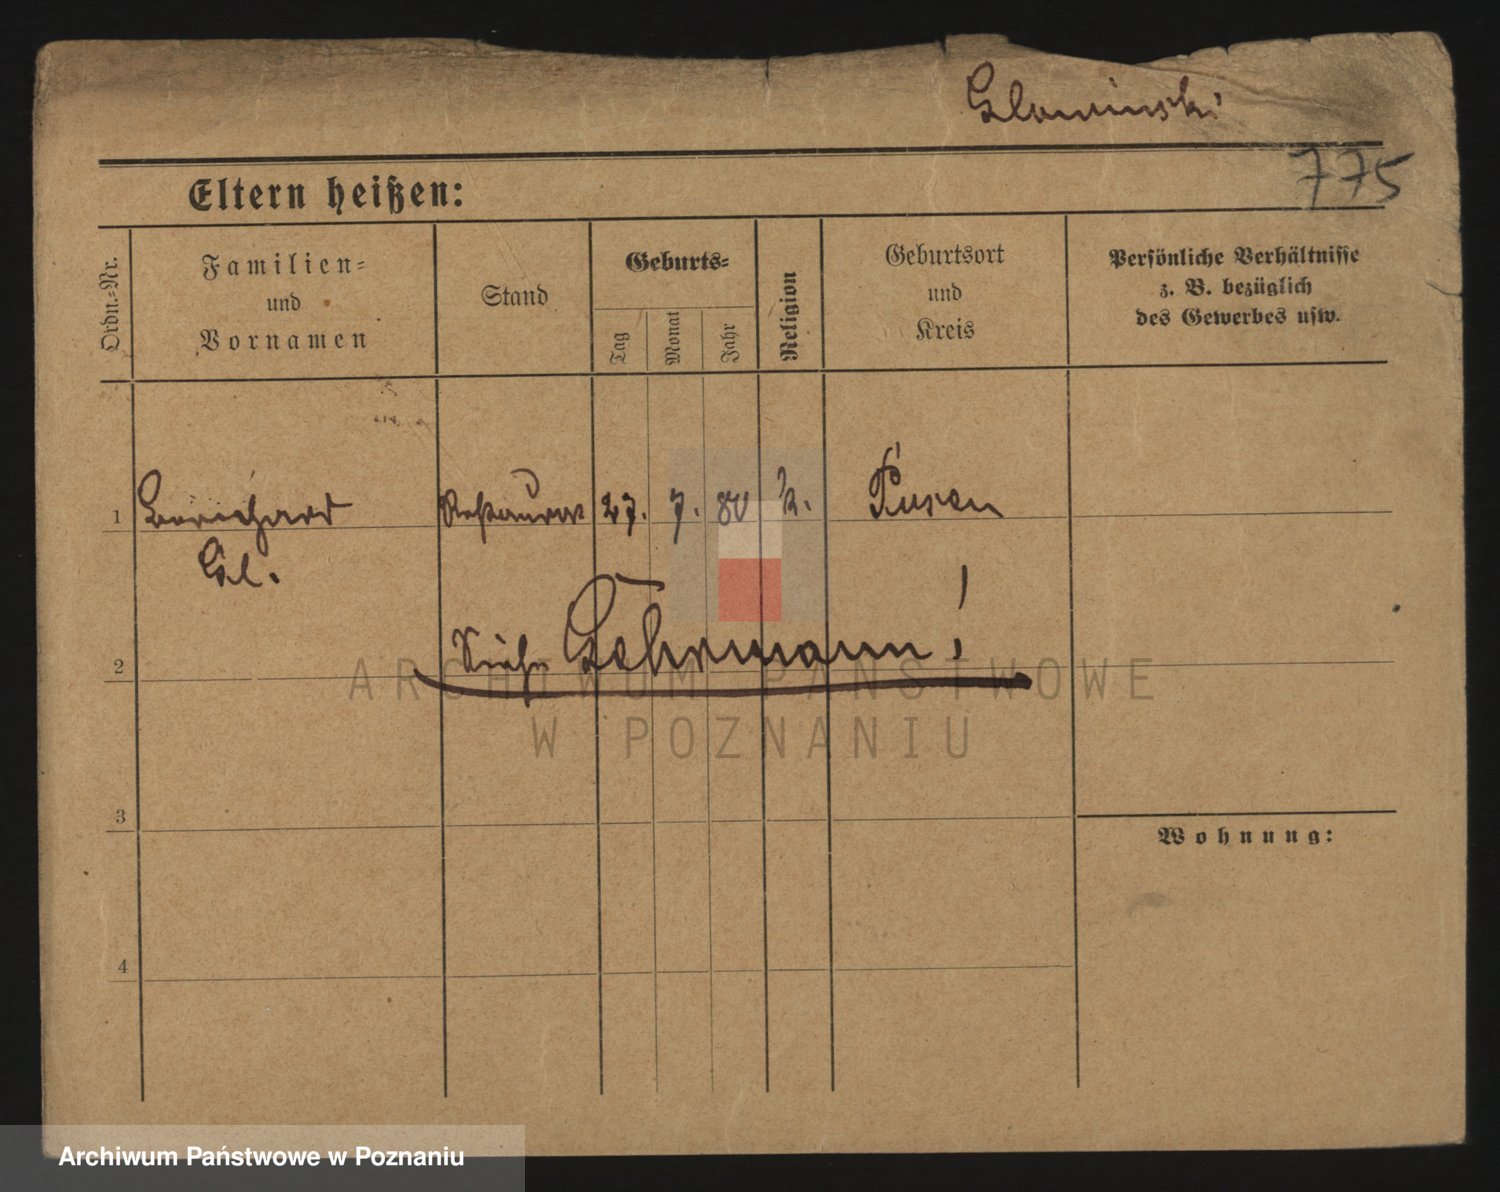 Glowinski
775
Eltern heißen:
Ordn.-Nr.
Familien-
und
Vornamen
Stand
Geburts-
Tag
Monat
Jahr
Religion
Geburtsort
und
Kreis
Persönliche Verhältnisse
z. B. bezüglich
des Gewerbes usw.
1 Restaurat 27. 7. 80 k. Posen
Gl.
2 Siehe Gehrmann!
ARCHIWUM PAŃSTWOWE
W POZNANIU
3
Wohnung:
4
Archiwum Państwowe w Poznaniu